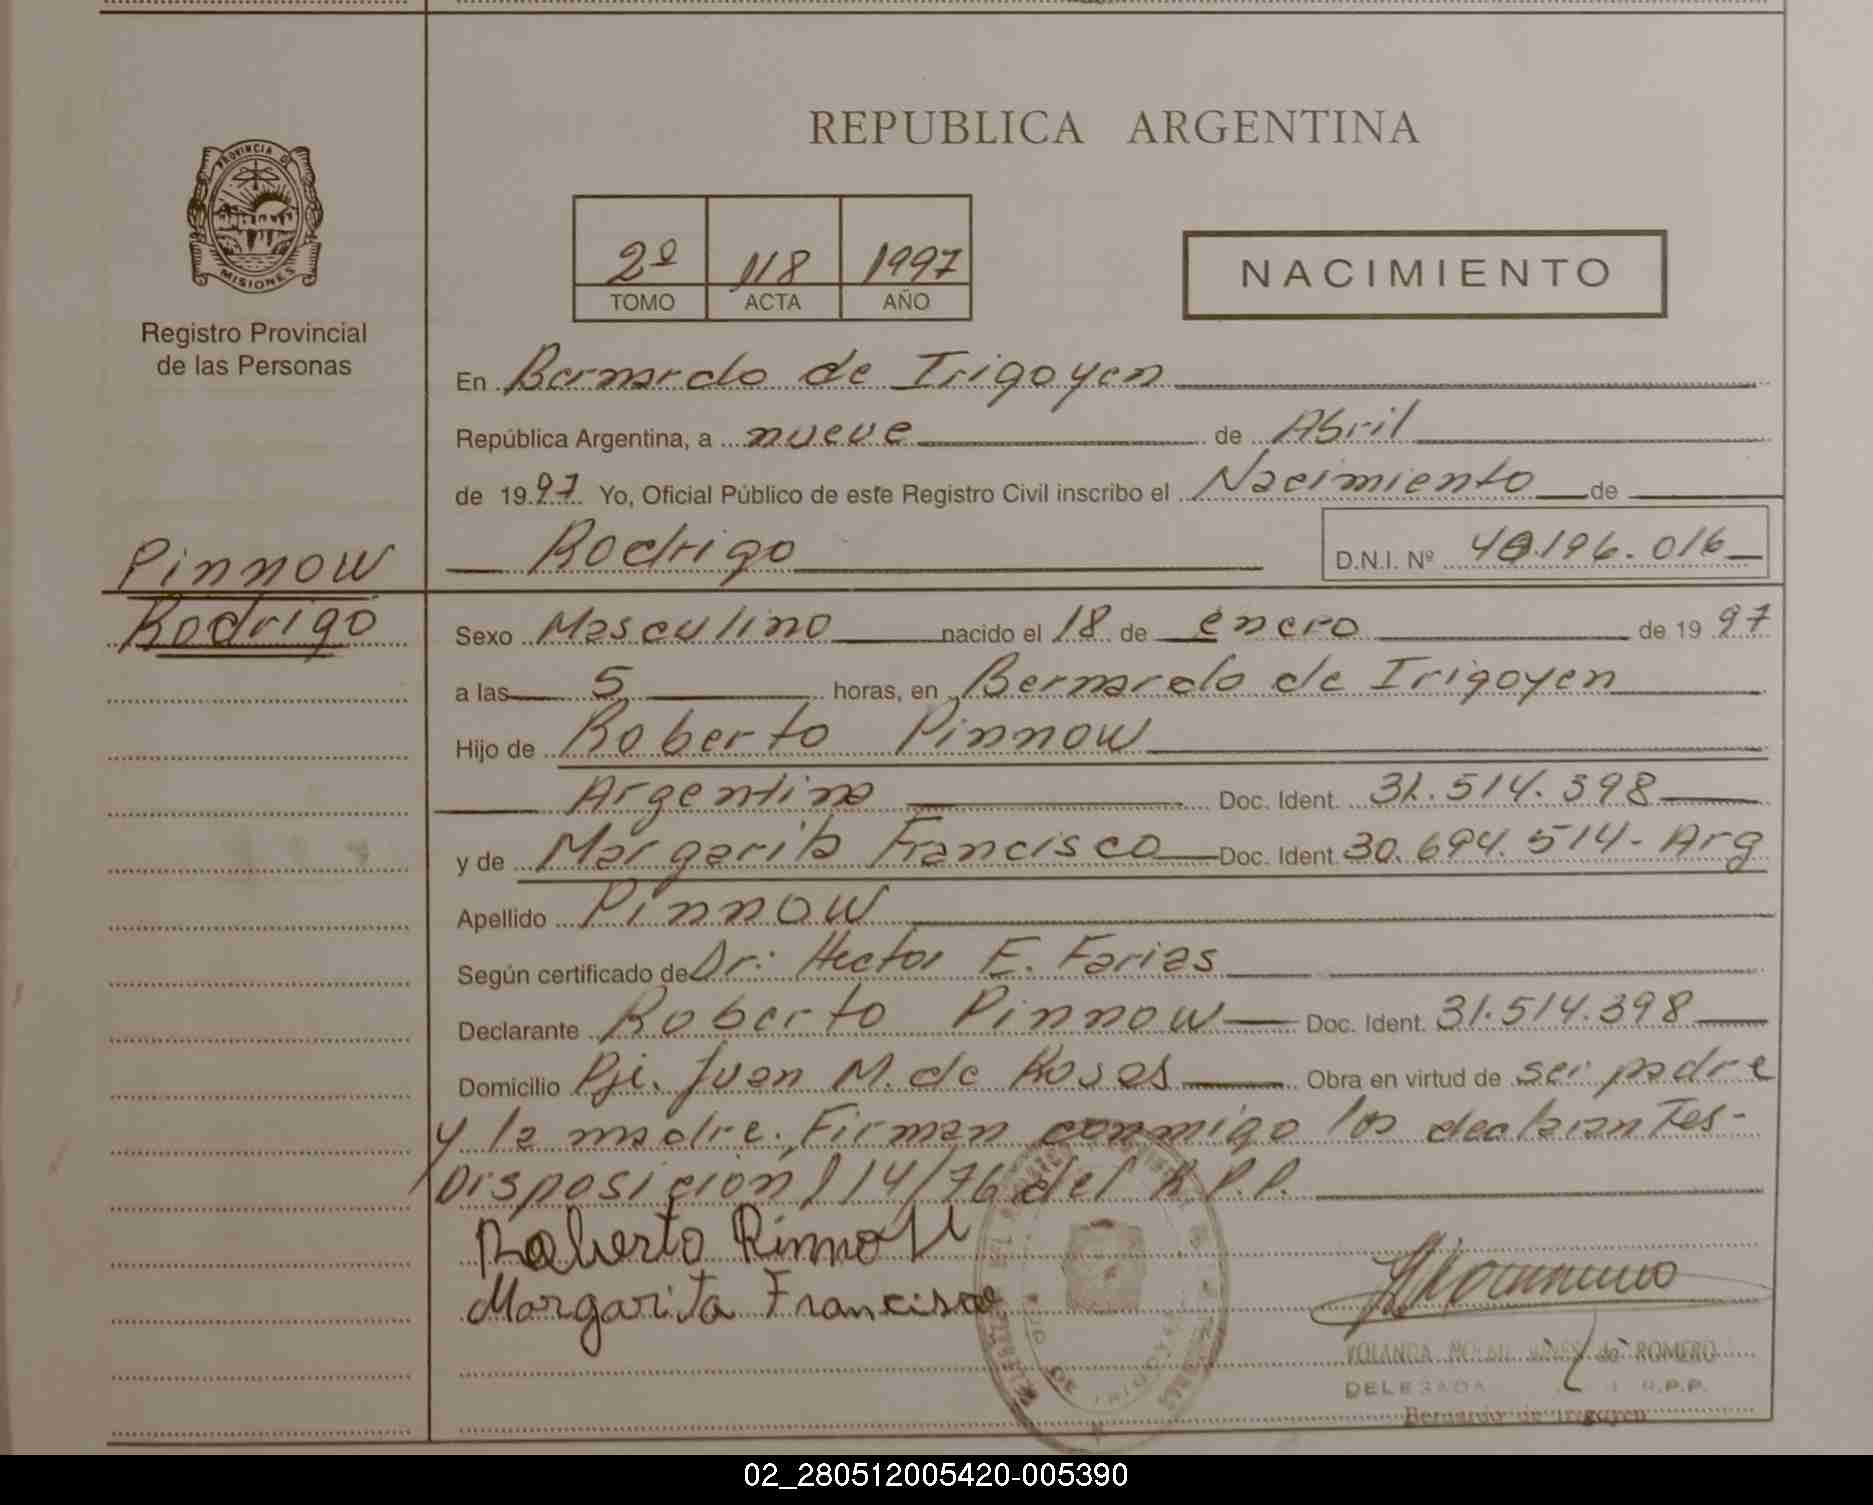 REPUBLICA ARGENTINA
PROVINCIA DE
MISIONES
Registro Provincial
de las Personas
2º 118 1997
TOMO ACTA AÑO
NACIMIENTO
En Bernardo de Irigoyen
República Argentina, a nueve de Abril
de 1997 Yo, Oficial Público de este Registro Civil inscribo el Nacimiento de
Rodrigo D.N.I. Nº 40.196.016
Pinnow
Rodrigo
Sexo Masculino nacido el 18 de enero de 1997
a las 5 horas, en Bernardo de Irigoyen
Hijo de Roberto Pinnow
Argentino Doc. Ident. 31.514.398
y de Margarita Francisco Doc. Ident. 30.694.514- Arg
Apellido Pinnow
Según certificado de Dr: Hector E. Farias
Declarante Roberto Pinnow Doc. Ident. 31.514.398
Domicilio Pji. Juan M. de Rosas Obra en virtud de ser padre
y la madre. Firman conmigo los declarantes-
Disposición 114/76 del R.P.P.
Roberto Pinnow
Margarita Francisco
YOLANDA de ROMERO
DELEGADA R.P.P.
Bernardo de Irigoyen
02_280512005420-005390